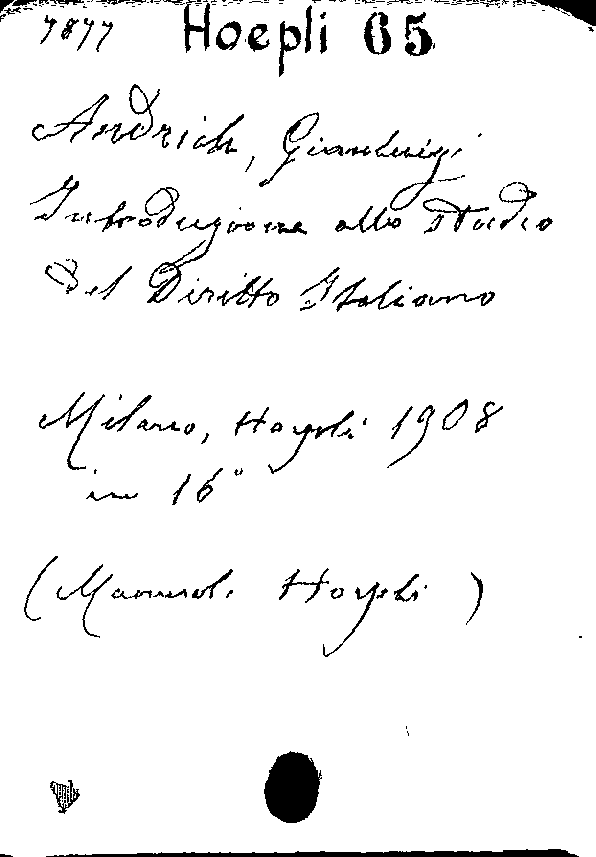 7877 Hoepli 65
Andrich, Gianluigi
Introduzione allo studio
del Diritto Italiano
Milano, Hoepli 1908
in 16°
(Manuali Hoepli)